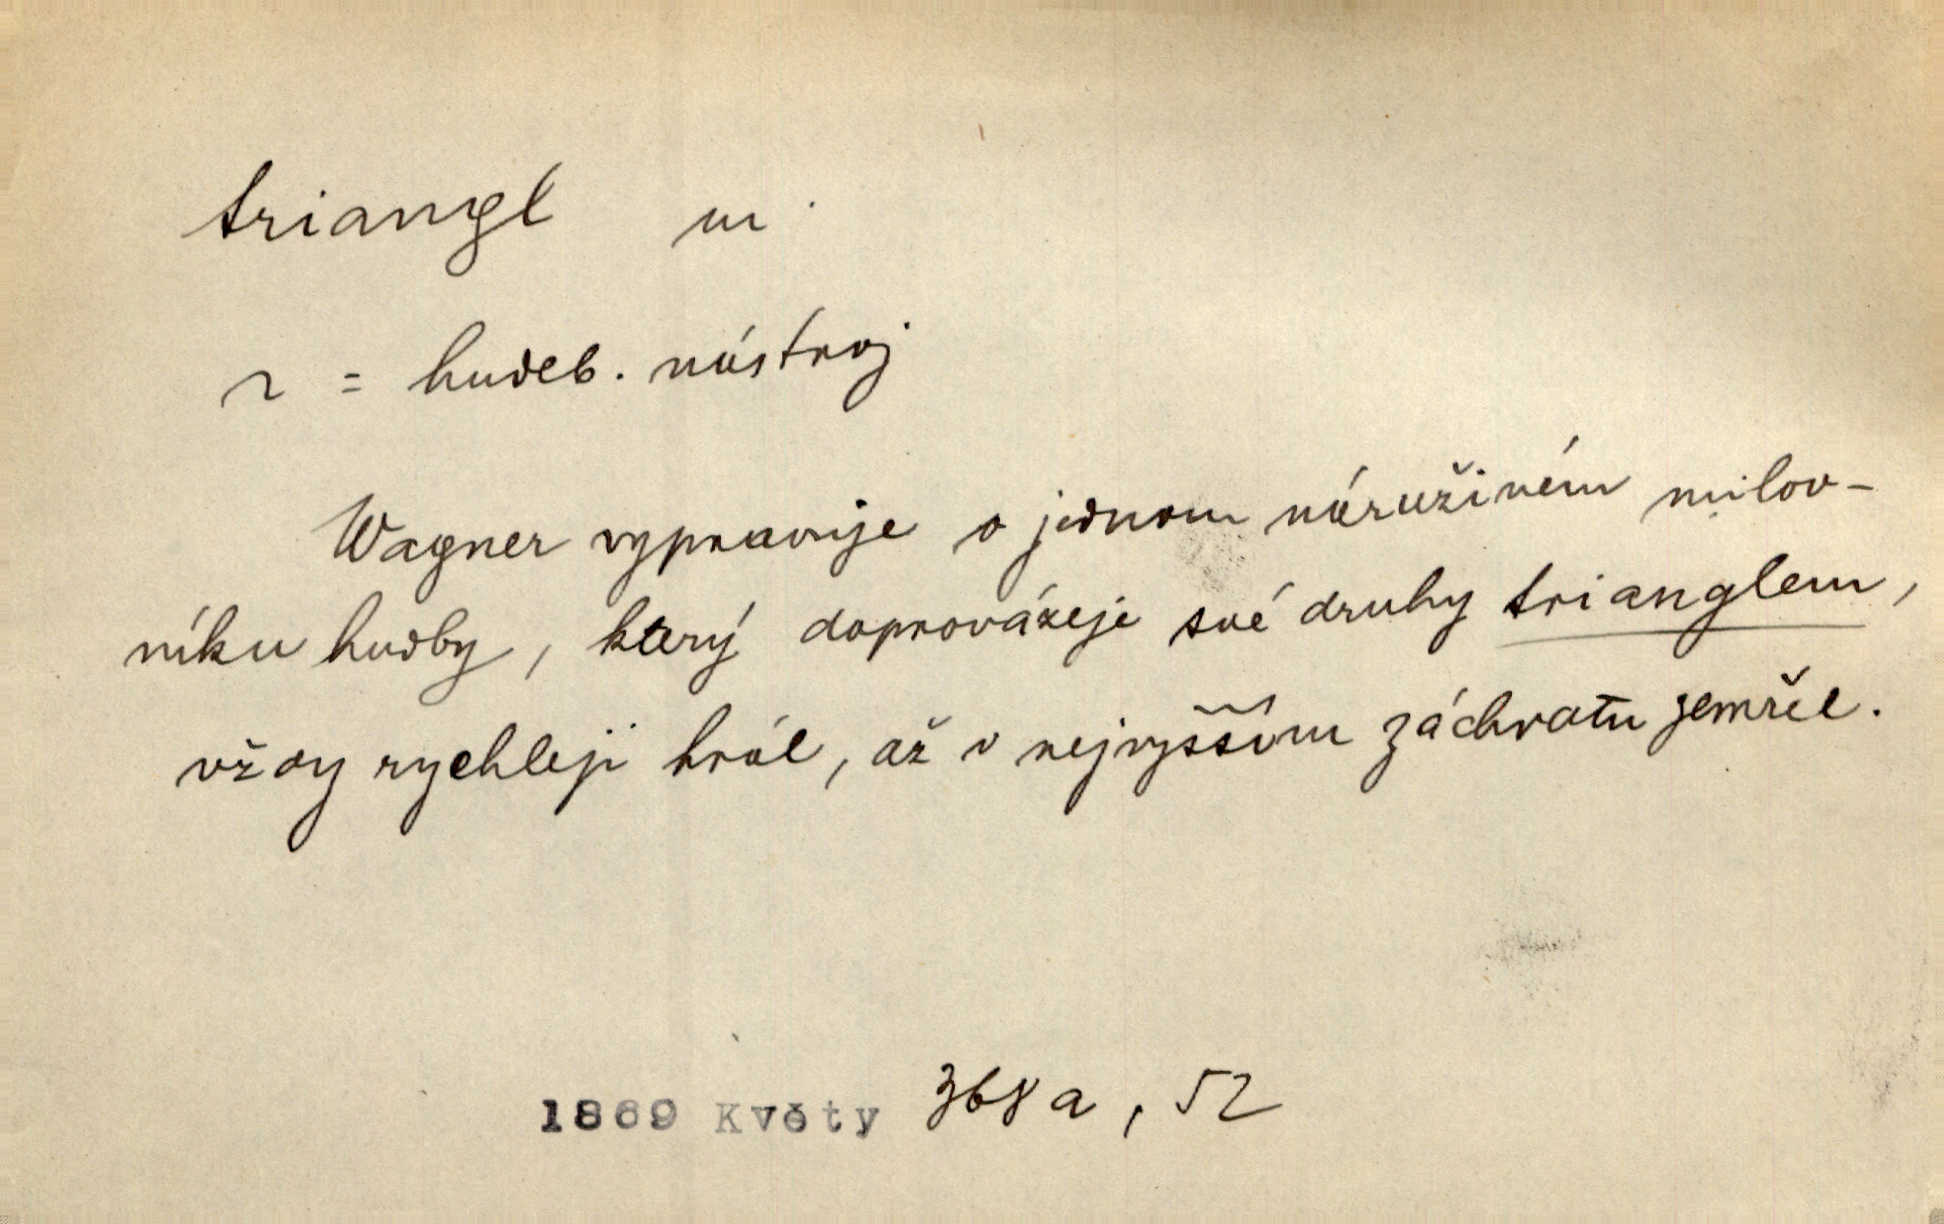 triangl m.
~ = hudeb. nástroj
Wagner vypravuje o jednom náruživém milov-
níku hudby, který doprovázeje své druhy trianglem,
vždy rychleji hrál, až v nejvyšším záchvatu zemřel.
1869 Květy 368 a, 52